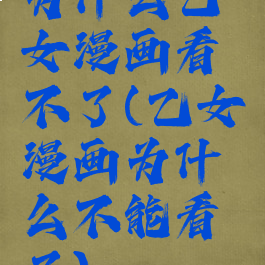 有什么乙
女漫画看
不了(乙女
漫画为什
么不能看
了)